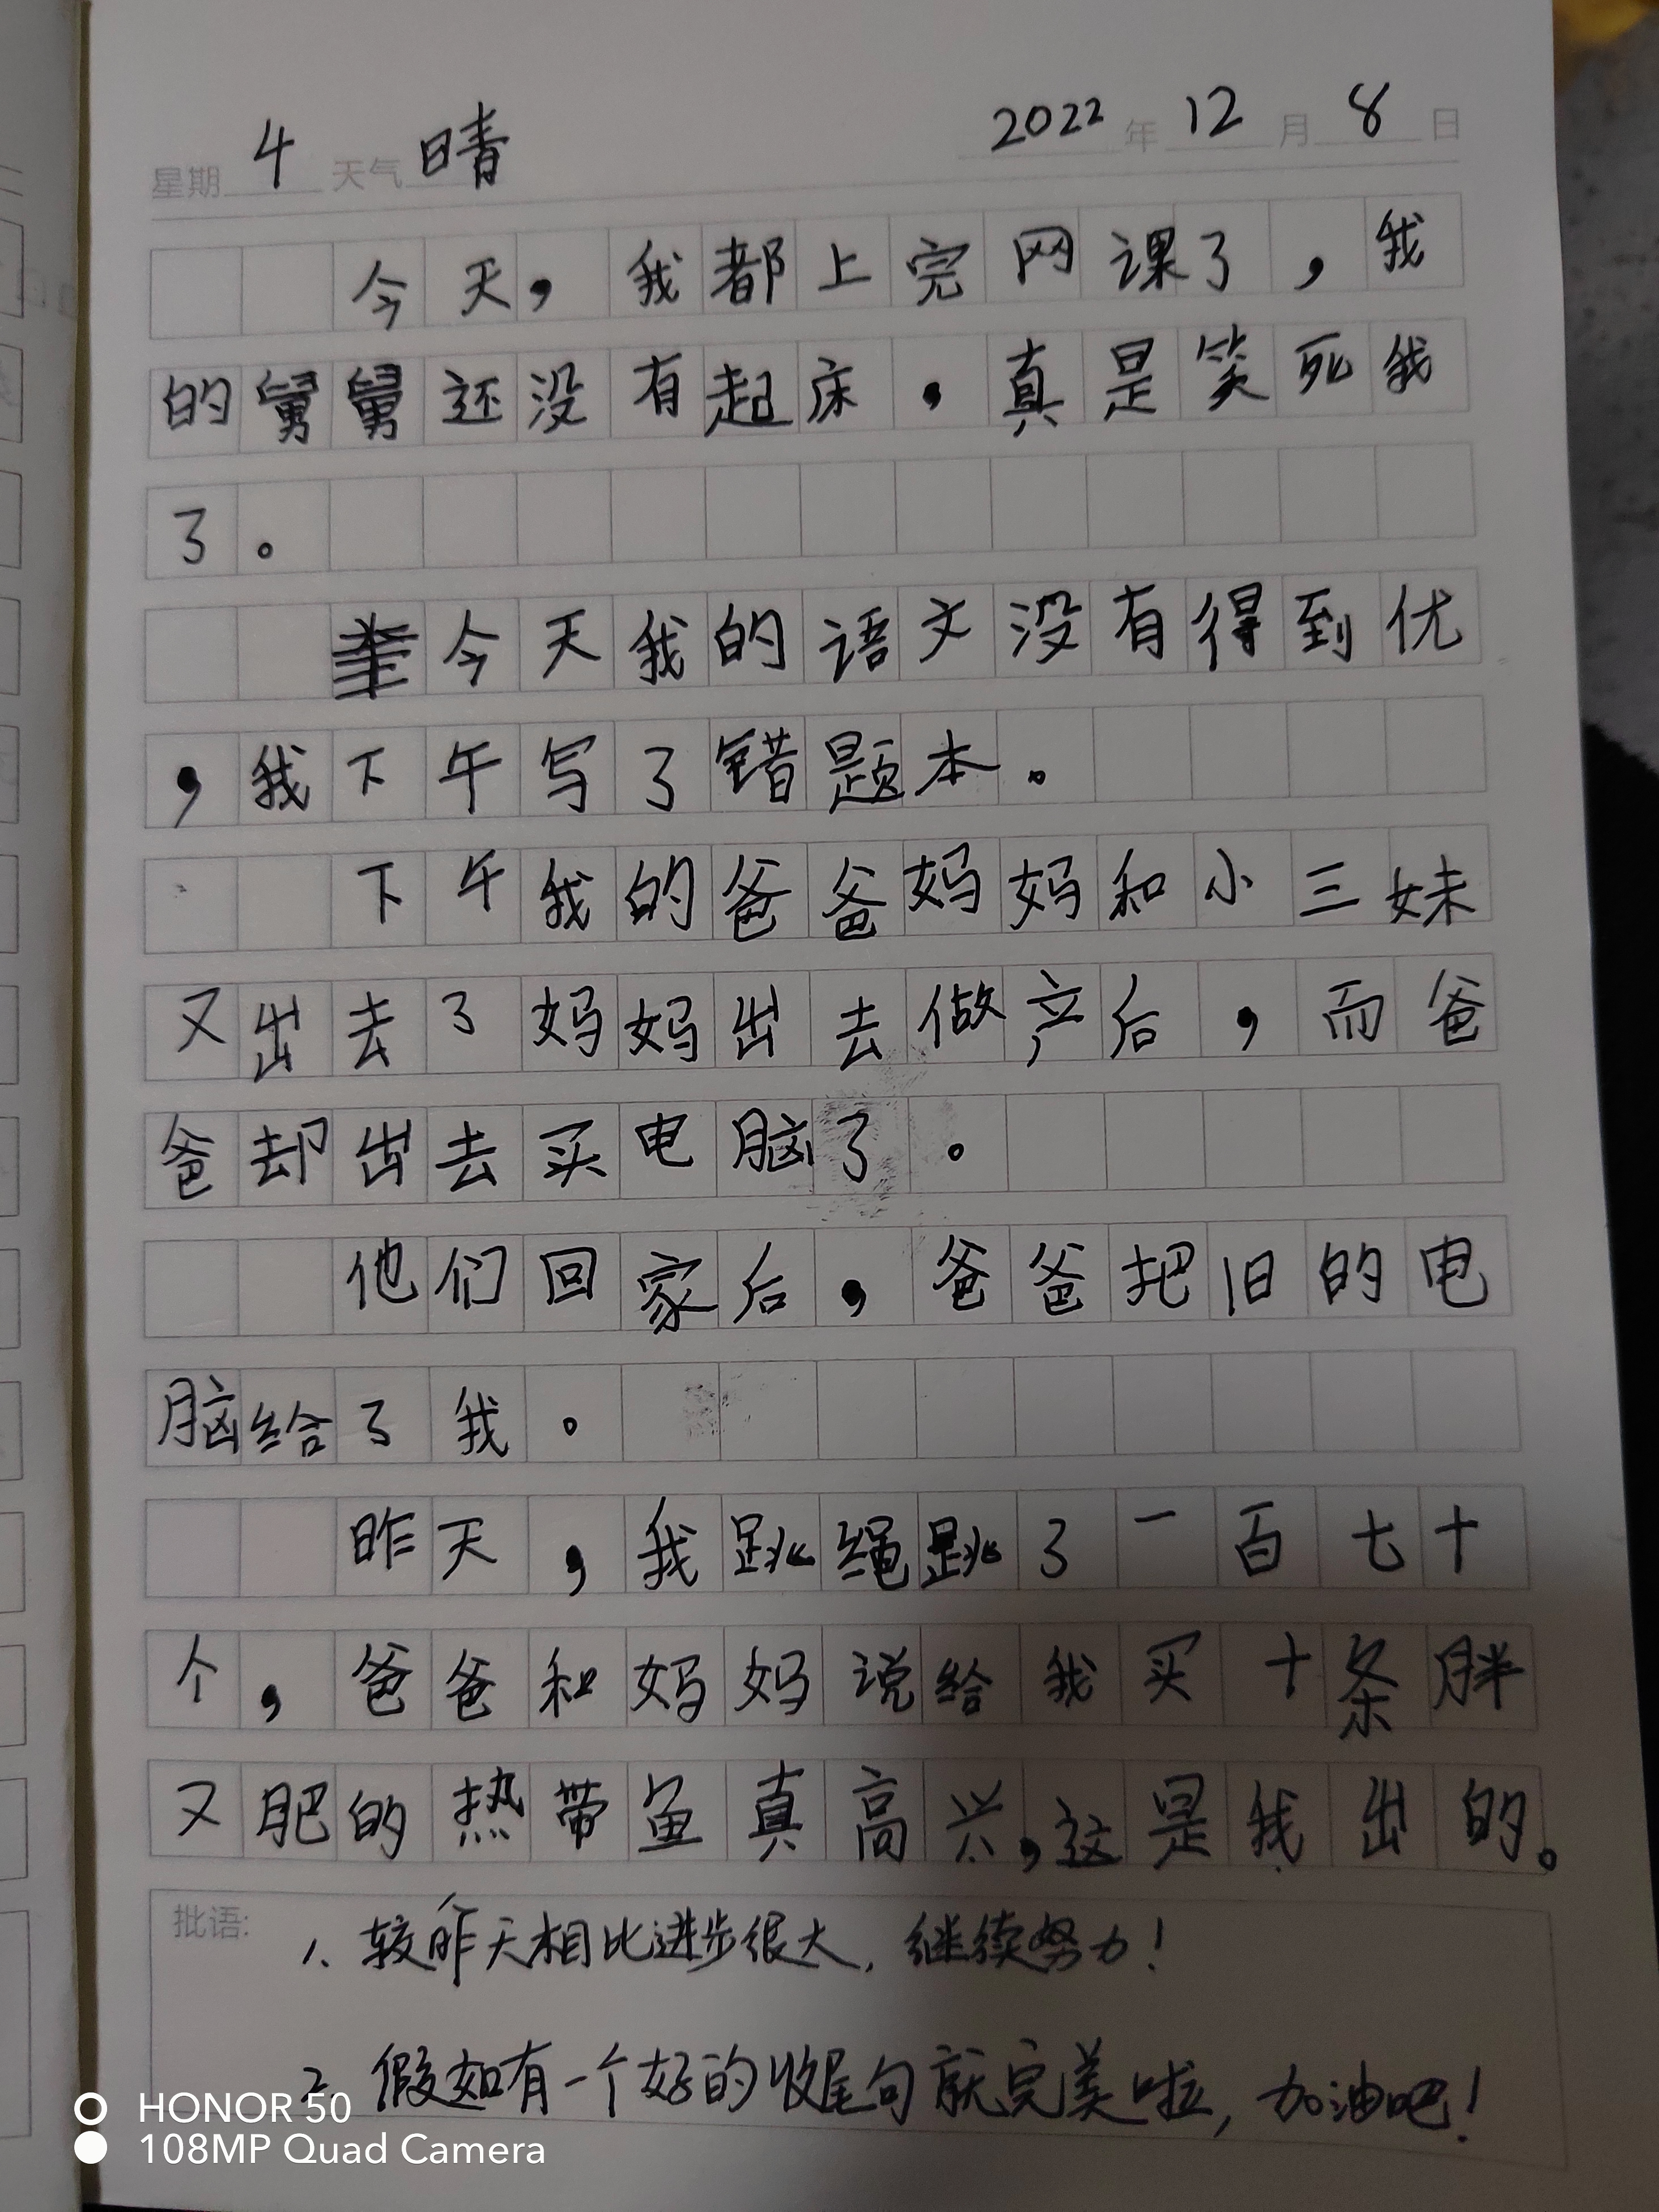 星期 4 天气 晴 2022 年 12 月 8 日
今天，我都上完网课了，我
的舅舅还没有起床，真是笑死我
了。
今天我的语文没有得到优
，我下午写了错题本。
下午我的爸爸妈妈和小三妹
又出去了妈妈出去做产后，而爸
爸却出去买电脑了。
他们回家后，爸爸把旧的电
脑给了我。
昨天，我跳绳跳了一百七十
个，爸爸和妈妈说给我买十条胖
又肥的热带鱼真高兴，这是我出的。
批语: 1、较昨天相比进步很大，继续努力！
2、假如有一个好的收尾句就完美啦，加油吧！
HONOR 50
108MP Quad Camera